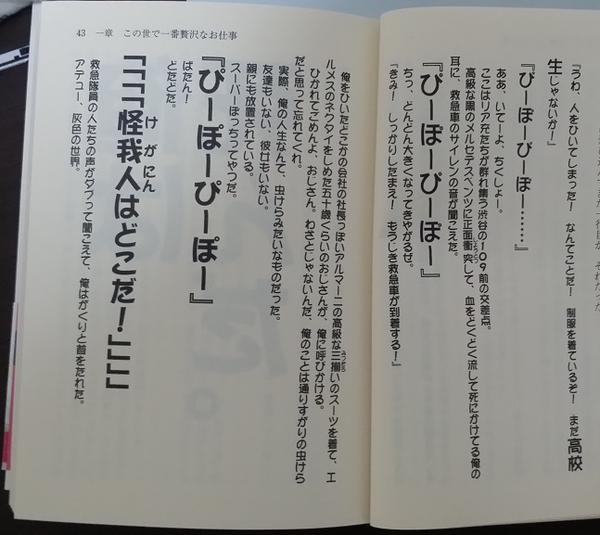 『うわ、人をひいてしまった！　なんてことだ！　制服を着ているぞ！　まだ高校
生じゃないか！』
『ぴーぽーぴーぽー……』
ああ、いてーよ、ちくしょー。
ここはリア充たちが群れ集う渋谷の109前の交差点。
高級な黒のメルセデスベンツに正面衝突して、血をどくどく流して死にかけてる俺の
耳に、救急車のサイレンの音が聞こえた。
『ぴーぽーぴーぽー』
ちっ、どんどん大きくなってきやがるぜ。
『きみ！　しっかりしたまえ！　もうじき救急車が到着する！』
43　一章　この世で一番贅沢なお仕事
俺をひいたどこかの会社の社長っぽいアルマーニの高級な三揃いのスーツを着て、エ
ルメスのネクタイをしめた五十歳くらいのおじさんが、俺に呼びかける。
ひかれてごめんよ、おじさん。わざとじゃないんだ、俺のことは通りすがりの虫けら
だと思って忘れてくれ。
実際、俺の人生なんて、虫けらみたいなものだった。
友達もいない、彼女もいない。
親にも放置されている。
スーパーぼっちってやつだ。
『ぴーぽーぴーぽー』
ばたん！
どたどた。
「「「「怪我人はどこだ！」」」」
けがにん
救急隊員の人たちの声がダブって聞こえて、俺はがくりと首をたれた。
アデュー、灰色の世界。